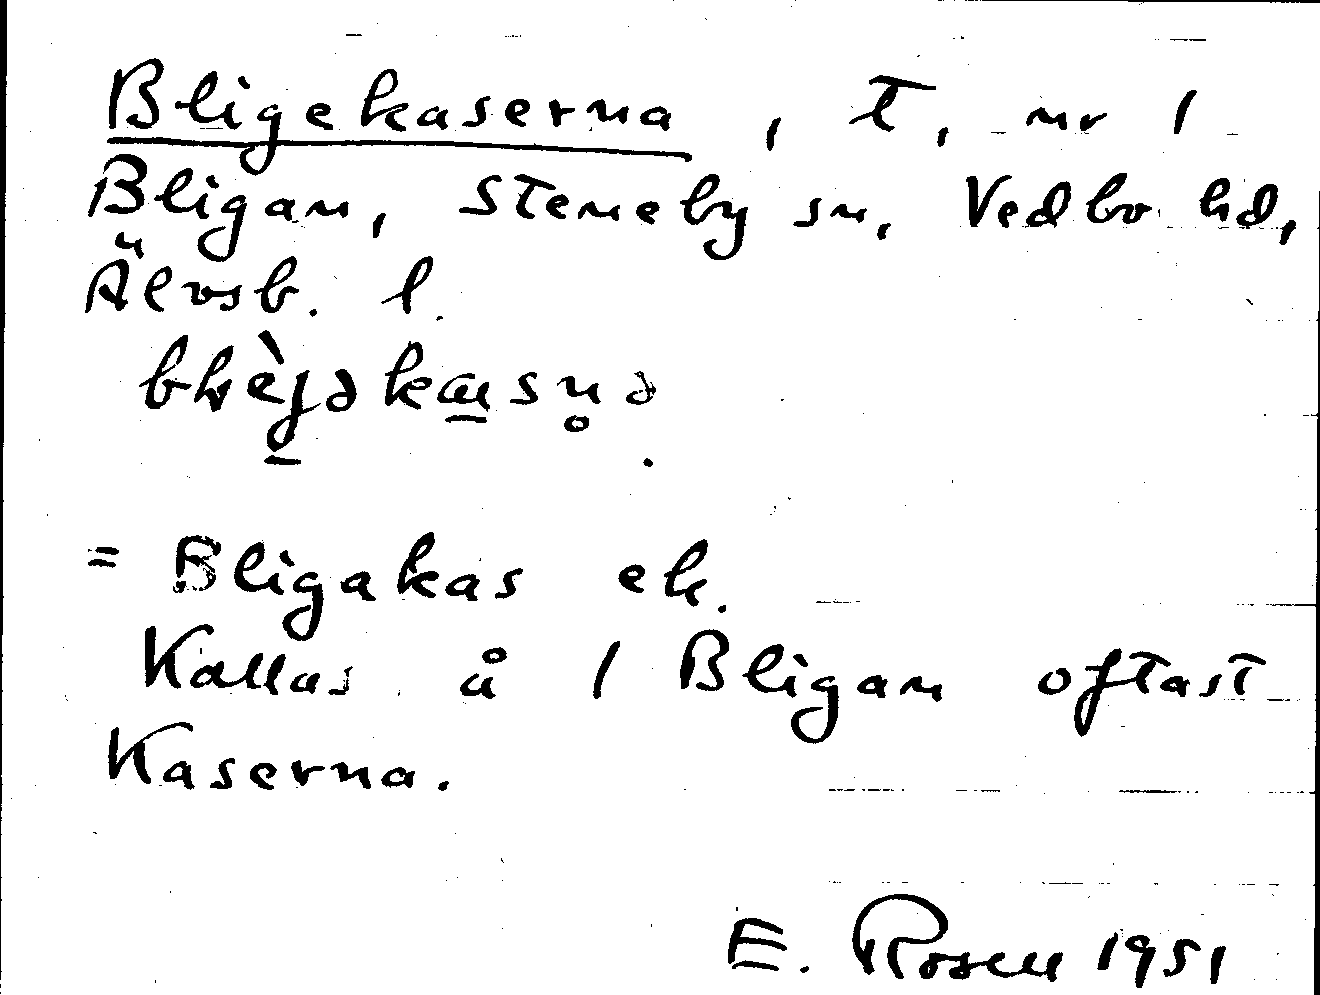 Bligekaserna, t, nr 1
Bligan, Steneby sn, Vedbo hd,
Älvsb. l.
= Bligakas ek.
Kallas å 1 Bligan oftast
Kaserna.
E. Rosell 1951